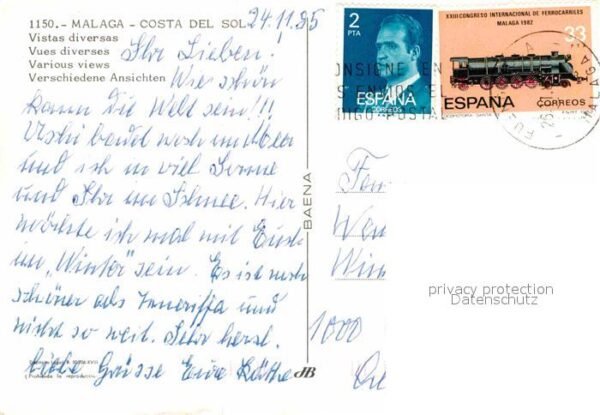 1150.- MALAGA - COSTA DEL SOL
24.11.85
Vistas diversas
Vues diverses
Various views
Verschiedene Ansichten
Ihr Lieben!
Wie schön
kann die Welt sein!!!
Uschi badet noch im Meer
und ich in viel Sonne
und Ihr im Schnee. Hier
möchte ich mal mit Euch
im „Winter" sein. Es ist noch
schöner als Teneriffa und
nicht so weit. Sehr herzl.
liebe Grüsse Eure Käthe
BAENA
2
PTA
ESPAÑA
CORREOS
XXIII CONGRESO INTERNACIONAL DE FERROCARRILES
MALAGA 1982
33
ESPAÑA
CORREOS
NSIGNE EN
MALAGA
Fam
Wien
1000
privacy protection
Datenschutz